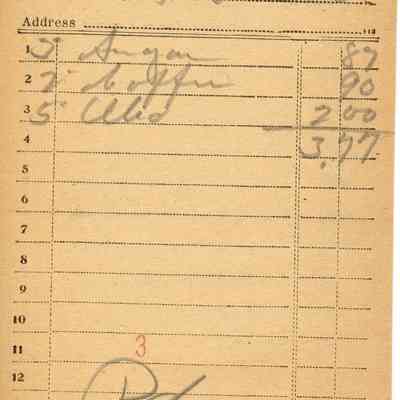 Address
1 3 Sugar 87
2 2 Coffee 90
3 5 2 00
4 3.77
5
6
7
8
9
10
11 3
12 Pd